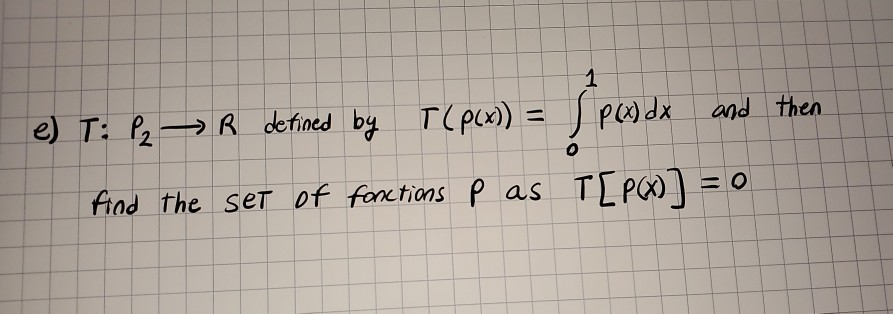 e) T: P₂ → R defined by T(p(x)) = ∫₀¹ p(x) dx and then
find the seT of fonctions p as T[p(x)] = 0